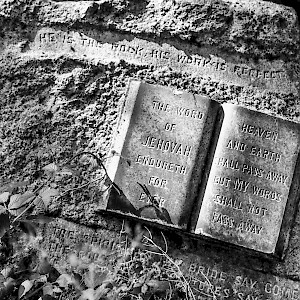 HE IS THE ROCK HIS WORK IS PERFECT
THE WORD
OF
JEHOVAH
ENDURETH
FOR
EVER
HEAVEN
AND EARTH
SHALL PASS AWAY
BUT MY WORDS
SHALL NOT
PASS AWAY
BRIDE SAY, COME